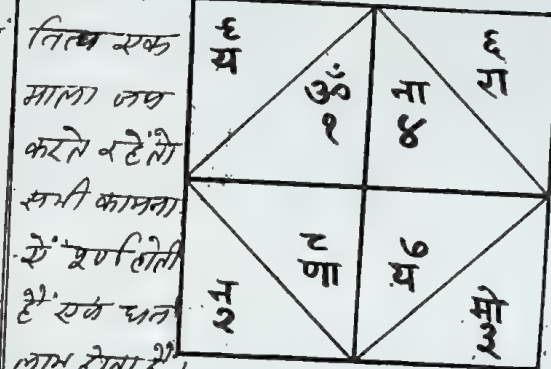 नित्य एक
माला जप
करते रहें तो
सभी कामना
एं पूर्ण होती
हैं एवं धन
लाभ होता है।
६
य
ॐ
१
ना
४
६
रा
न
२
८
णा
७
य
मो
३